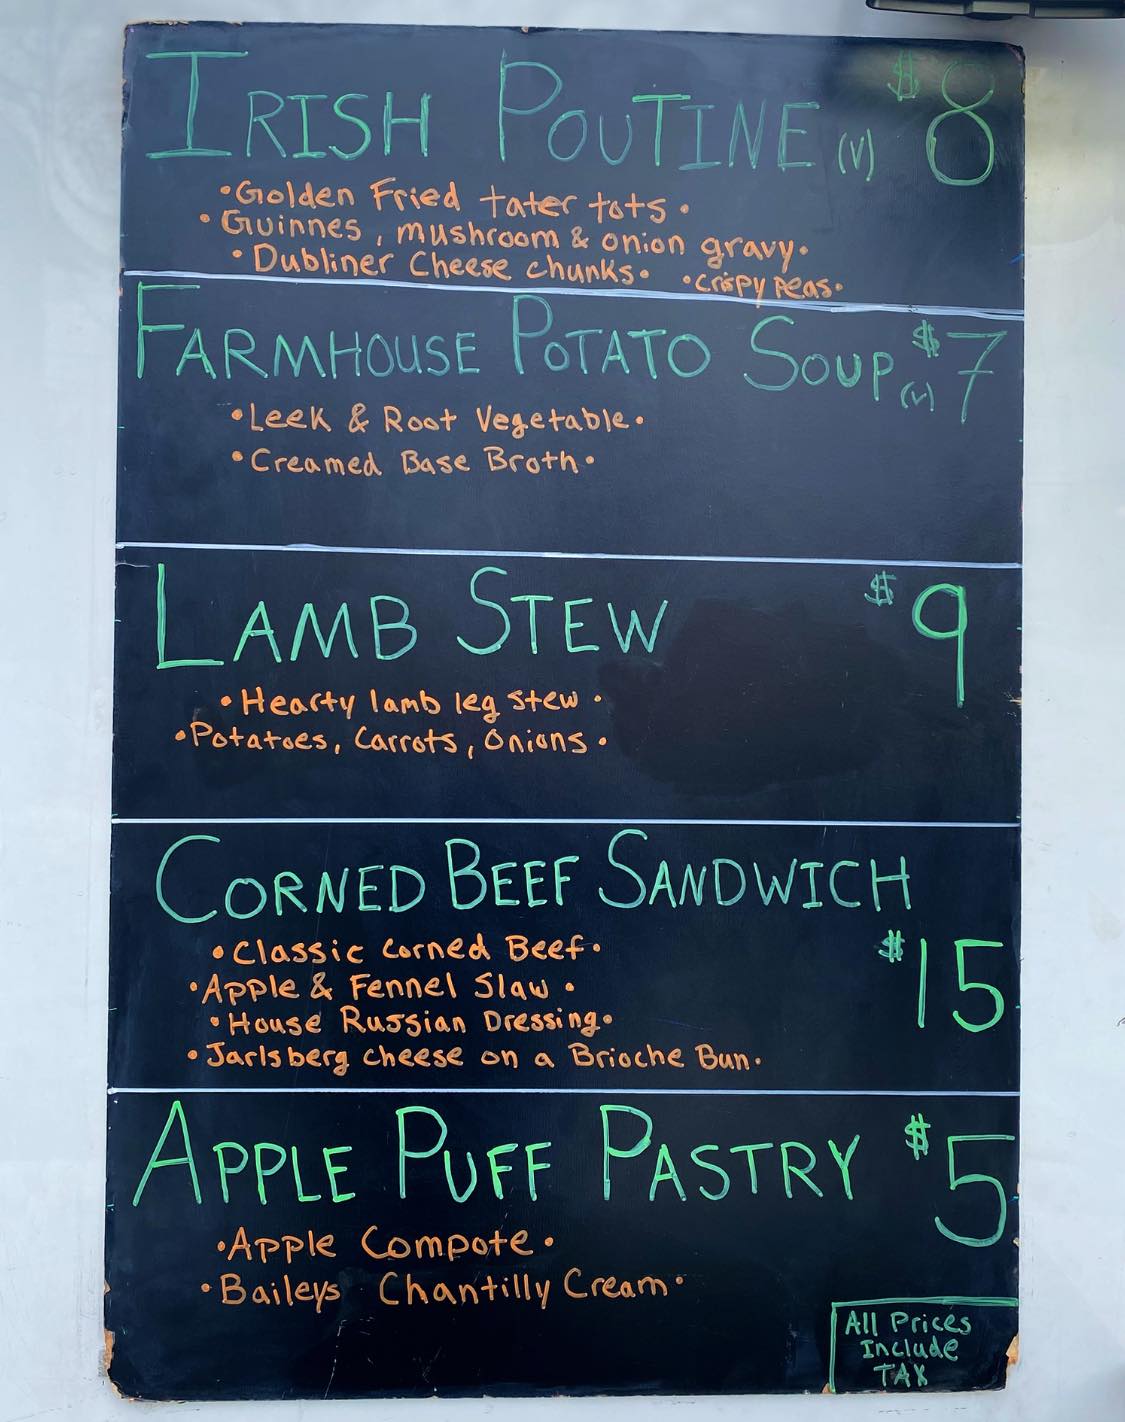 IRISH POUTINE (V) $8
•Golden Fried tater tots•
•Guinnes, mushroom & onion gravy•
•Dubliner Cheese chunks• •crispy peas•
FARMHOUSE POTATO SOUP (V) $7
•Leek & Root Vegetable•
•Creamed Base Broth•
LAMB STEW $9
•Hearty lamb leg stew•
•Potatoes, Carrots, Onions•
CORNED BEEF SANDWICH
•Classic Corned Beef•
$15
•Apple & Fennel Slaw•
•House Russian Dressing•
•Jarlsberg cheese on a Brioche Bun•
APPLE PUFF PASTRY $5
•Apple Compote•
•Baileys Chantilly Cream•
All Prices
Include
TAX